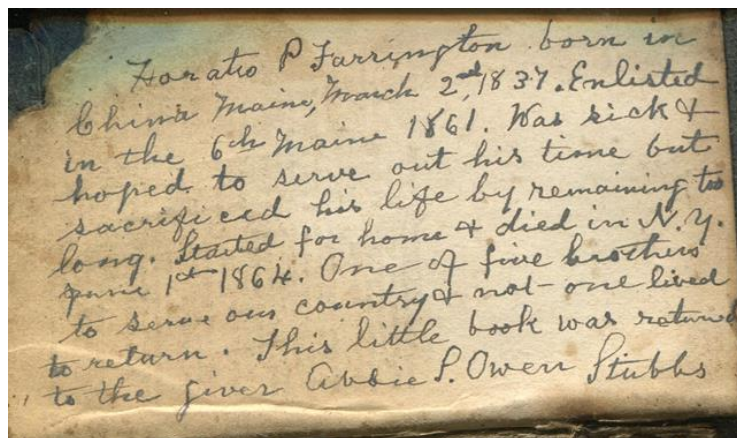 Horatio P Farrington born in
China Maine, March 2nd, 1837. Enlisted
in the 6th Maine 1861. Was sick &
hoped to serve out his time but
sacrificed his life by remaining too
long. Started for home & died in N.Y.
June 1st 1864. One of five brothers
to serve our country & not one lived
to return. This little book was returned
to the giver Abbie S. Owen Stubbs